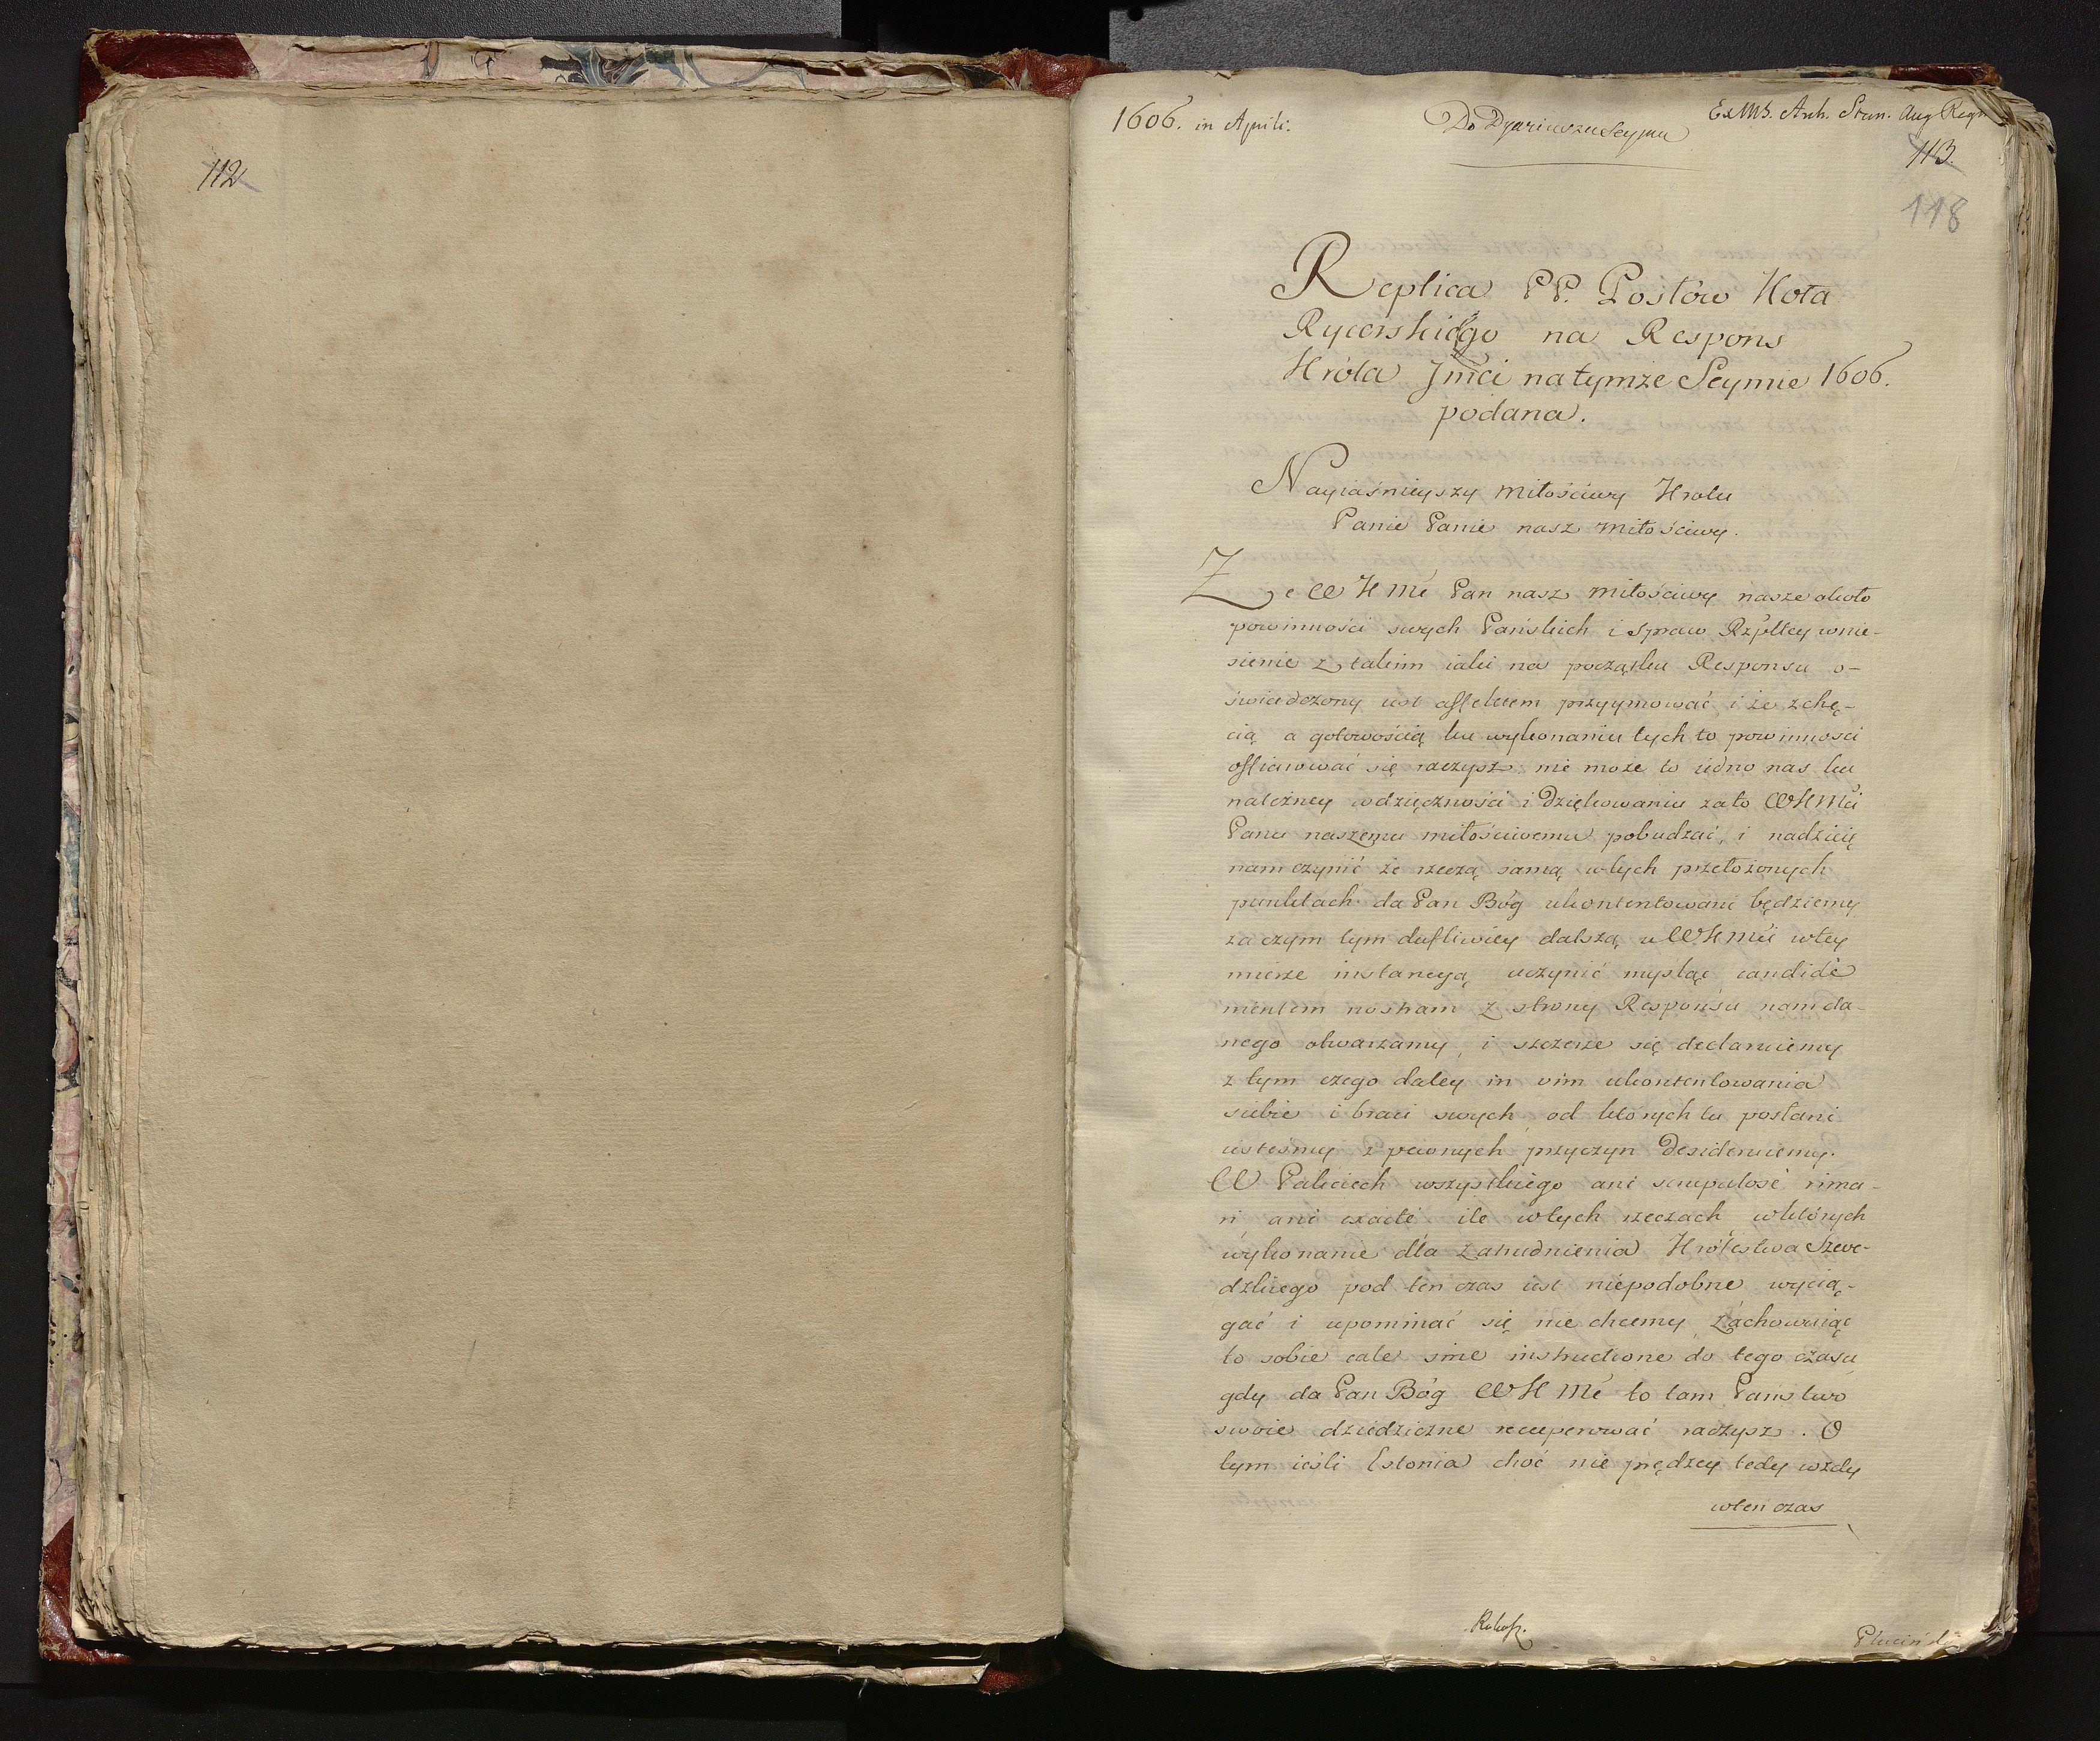 112
1606. in Aprili.
Do Dyariuszu Seymu
Ex MS. Arch. Stan. Aug Regis
113.
118
Replica PP. Posłów Koła
Rycerskiego na Respons
Króla Jmci na tymże Seymie 1606.
podana.
Nayiaśnieyszy Miłościwy Krolu
Panie Panie nasz Miłościwy.
Ze W K Mć Pan nasz Miłościwy nasze około
powinności swych Pańskich i spraw Rzpltey wnie-
sienie z takim iaki na początku Responsu o-
świadczony iest affektem przyymować, i że z chę-
cią a gotowością ku wykonaniu tych to powinności
offiarować się raczysz nie może to iedno nas ku
należney wdzięczności i Dziękowaniu zato WKMći
Panu naszemu miłościwemu pobudzać, i nadzieię
nam czynić że rzeczą samą w tych przełożonych
punktach da Pan Bóg ukontentowani będziemy
za czym tym dufliwiey dalszą u WKMći w tey
mierze instancyą uczynić myśląc candidè
mentem nostram z strony Responsu nam da-
nego otwarzamy, i szczerze się declaruiemy
z tym czego daley in vim ukontentowania
siebie i braci swych od których tu posłani
iesteśmy z pewnych przyczyn Desideruiemy.
W Pakciech wszystkiego ani scrupulosè rima-
ri ani exactè ile w tych rzeczach w których
wykonanie dla zatrudnienia Królestwa Szwe-
dzkiego pod ten czas iest niepodobne wycią-
gać i upominać się nie chcemy, Zachowuiąc
to sobie cale sine instructione do tego czasu
gdy da Pan Bóg WK Mć to tam Państwo
swoie dziedziczne recuperować raczysz. O
tym ieśli Estonia choć nie prędzey tedy wżdy
w ten czas
Rokosz.